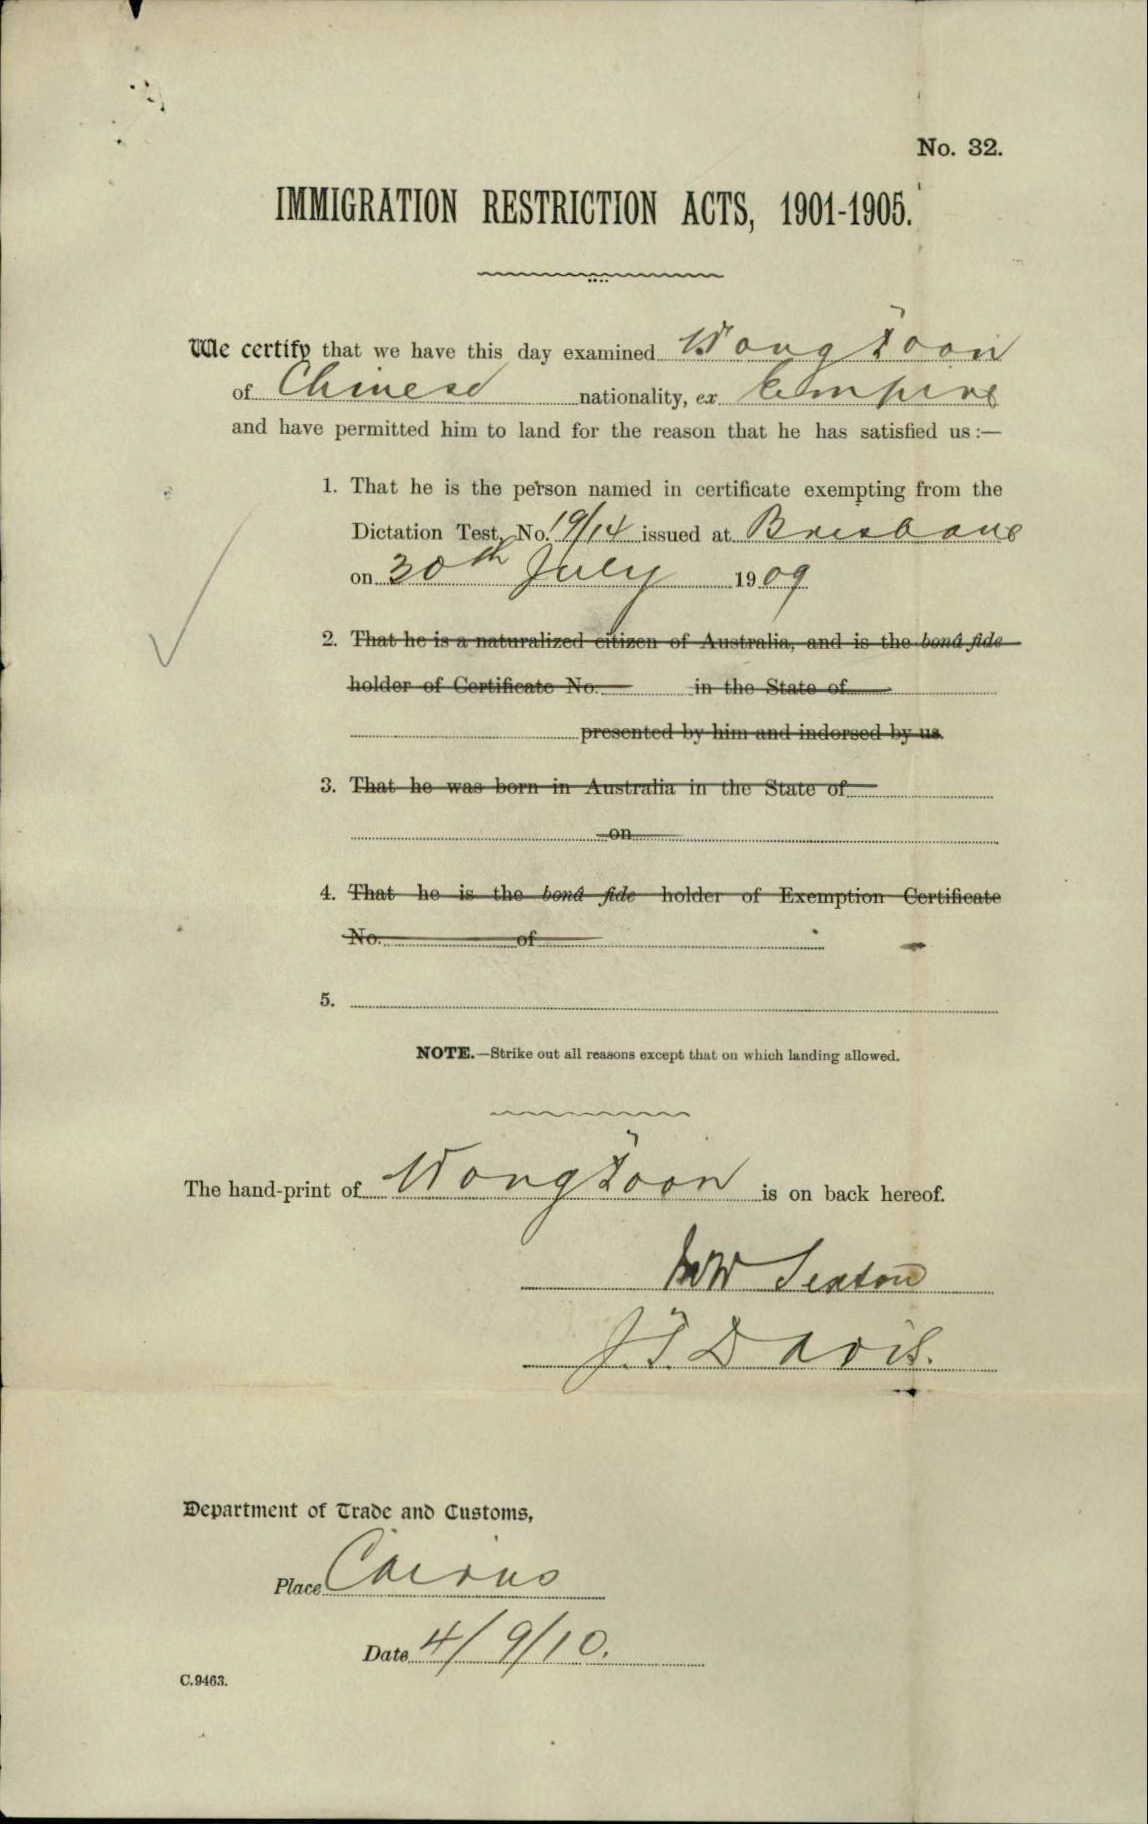 No. 32.
IMMIGRATION RESTRICTION ACTS, 1901-1905.
We certify that we have this day examined Wong Toon
of Chinese nationality, ex Empire
and have permitted him to land for the reason that he has satisfied us :—
1. That he is the person named in certificate exempting from the
Dictation Test, No. 19/14 issued at Brisbane
on 30th July 1909
2. That he is a naturalized citizen of Australia, and is the bonâ fide
holder of Certificate No. in the State of
presented by him and indorsed by us.
3. That he was born in Australia in the State of
on
4. That he is the bonâ fide holder of Exemption Certificate
No. of
5.
NOTE.—Strike out all reasons except that on which landing allowed.
The hand-print of Wong Toon is on back hereof.
Sexton
J.T. Davis.
Department of Trade and Customs,
Place Cairns
Date 4/9/10.
C.9463.